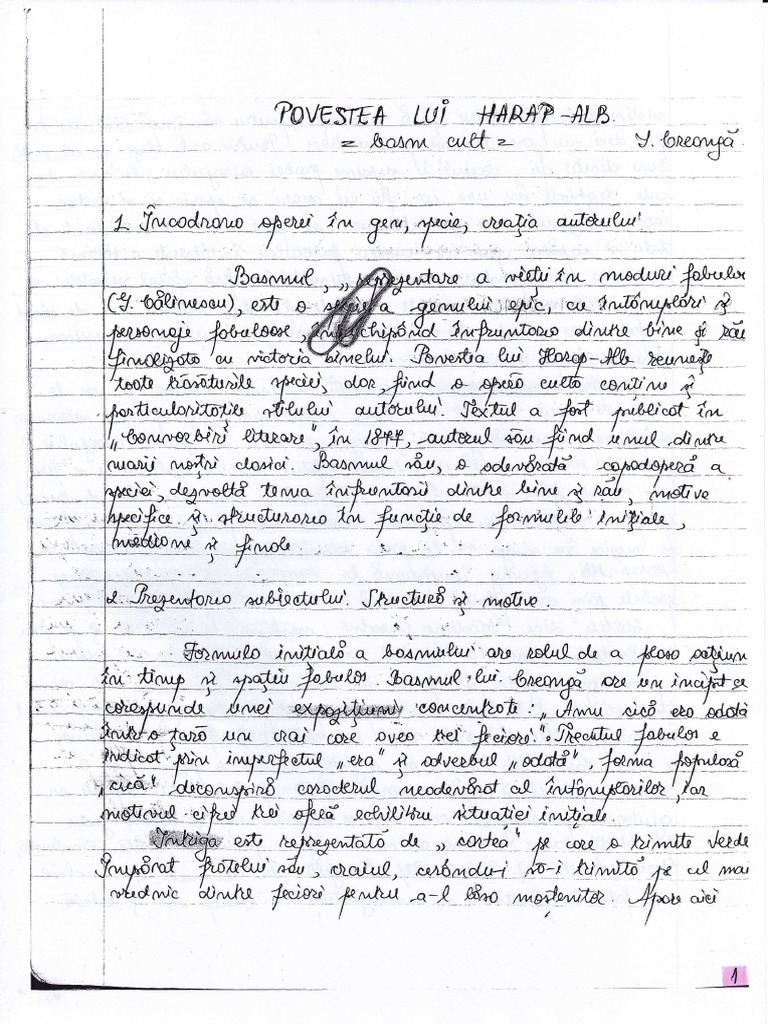 POVESTEA LUI HARAP-ALB.
= basm cult =
I. Creangă.
1. Încadrarea operei în gen, specie, creația autorului
Basmul, „reprezentare a vieții în moduri fabulo
(G. Călinescu), este o specie a genului epic, cu întâmplări și
personaje fabuloase, închipând înfruntarea dintre bine și rău
finalizată cu victoria binelui. Povestea lui Harap-Alb reunește
toate trăsăturile speciei, dar, fiind o operă cultă conține și
particularitățile stilului autorului. Textul a fost publicat în
„Convorbiri literare", în 1877, autorul său fiind unul dintre
marii noștri clasici. Basmul său, o adevărată capodoperă a
speciei, dezvoltă tema înfruntării dintre bine și rău, motive
specifice și structurarea în funcție de formulele inițiale,
mediane și finale.
2. Prezentarea subiectului. Structură și motive.
Formula inițială a basmului are rolul de a plasa acțiun
în timp și spațiu fabulos. Basmul lui Creangă are un început ce
corespunde unei expozițiuni concentrate: „Amu cică era odată
într-o țară un crai care avea trei feciori". Trecutul fabulos e
indicat prin imperfectul „era" și adverbul „odată", forma populară
„cică" deconspiră caracterul neadevărat al întâmplărilor, iar
motivul cifrei trei oferă echilibru situației inițiale.
Intriga este reprezentată de „cartea" pe care o trimite Verde
Împărat fratelui său, craiul, cerându-i să-i trimită pe cel mai
vrednic dintre feciori pentru a-l lăsa moștenitor. Apare aici
1